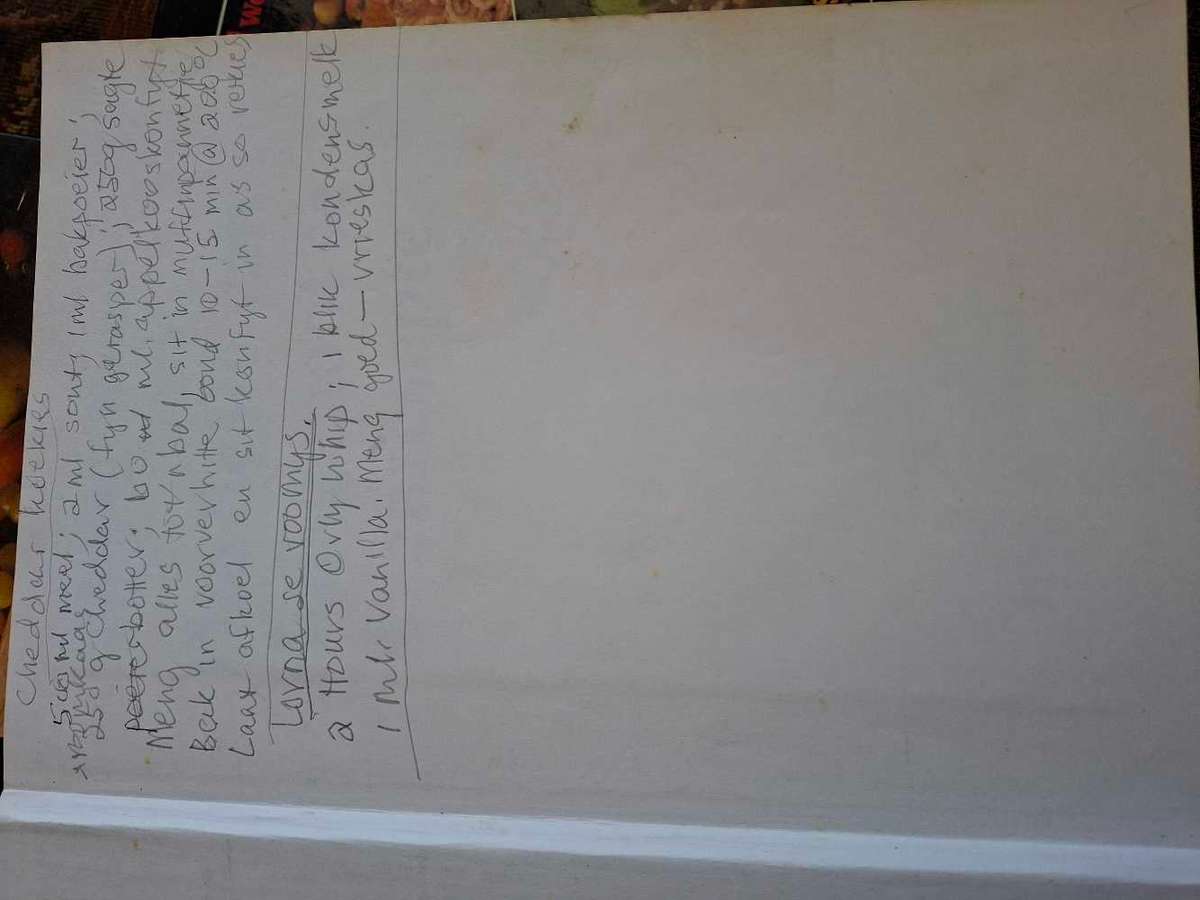 Cheddar koekies
500 ml meel; 2 ml sout; 1 ml bakpoeier;
g cheddar (fyn gerasper); 250g sagte
botter; ml. appelkooskonfyt
Meng alles tot 'n bal, sit in muffinpannetjie
Bak in voorverhitte oond 10-15 min @ 200 °c
Laat afkoel en sit konfyt in as so verkies
Lorna se roomys.
2 Hours Orly whip; 1 blik kondensmelk
1 ml. vanilla. Meng goed - vrieskas.
We